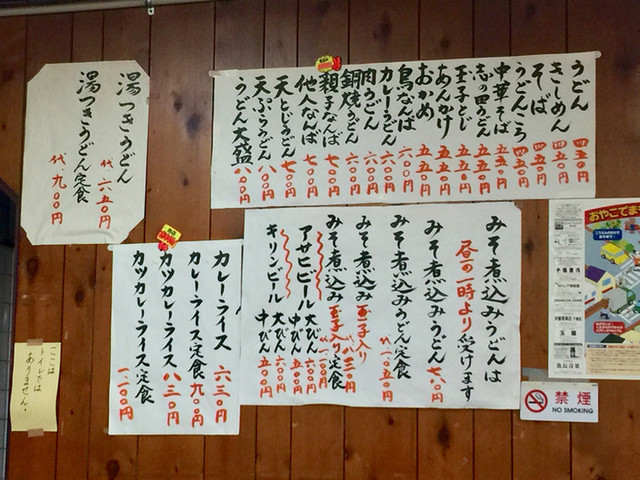 うどん 四五〇円
きしめん 四五〇円
そば 四五〇円
うどんころ 四五〇円
中華そば 五五〇円
志の田うどん 五五〇円
玉子とじ 五五〇円
あんかけ 五五〇円
おかめ 五五〇円
鳥なんば 六〇〇円
カレーうどん 六〇〇円
肉うどん 六〇〇円
鍋焼うどん 七〇〇円
親子なんば 七〇〇円
他人なんば 七〇〇円
天とじうどん 七〇〇円
天ぷらうどん 八〇〇円
うどん大盛 一〇〇円
湯つきうどん
代 六五〇円
湯つきうどん定食
代 九〇〇円
みそ煮込みうどんは
昼の一時より受けます
みそ煮込みうどん 七八〇円
みそ煮込みうどん定食
代一〇五〇円
みそ煮込み玉子入り
代八三〇円
みそ煮込み玉子入り定食
代一一〇〇円
アサヒビール 大びん 六〇〇円
中びん 五〇〇円
キリンビール 大びん 六〇〇円
中びん 五〇〇円
カレーライス 六三〇円
カレーライス定食 九〇〇円
カツカレーライス 八三〇円
カツカレーライス定食
一一〇〇円
ここは
トイレでは
ありません。
おやこでまち
禁煙
NO SMOKING